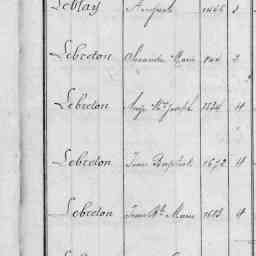 LeMay August 1
Lebreton Alexandre Marie 2
Lebreton Aug. Mie Joseph 1834 4
Lebreton Jean Baptiste 1672 4
Lebreton Jean Bte Marie 1613 4